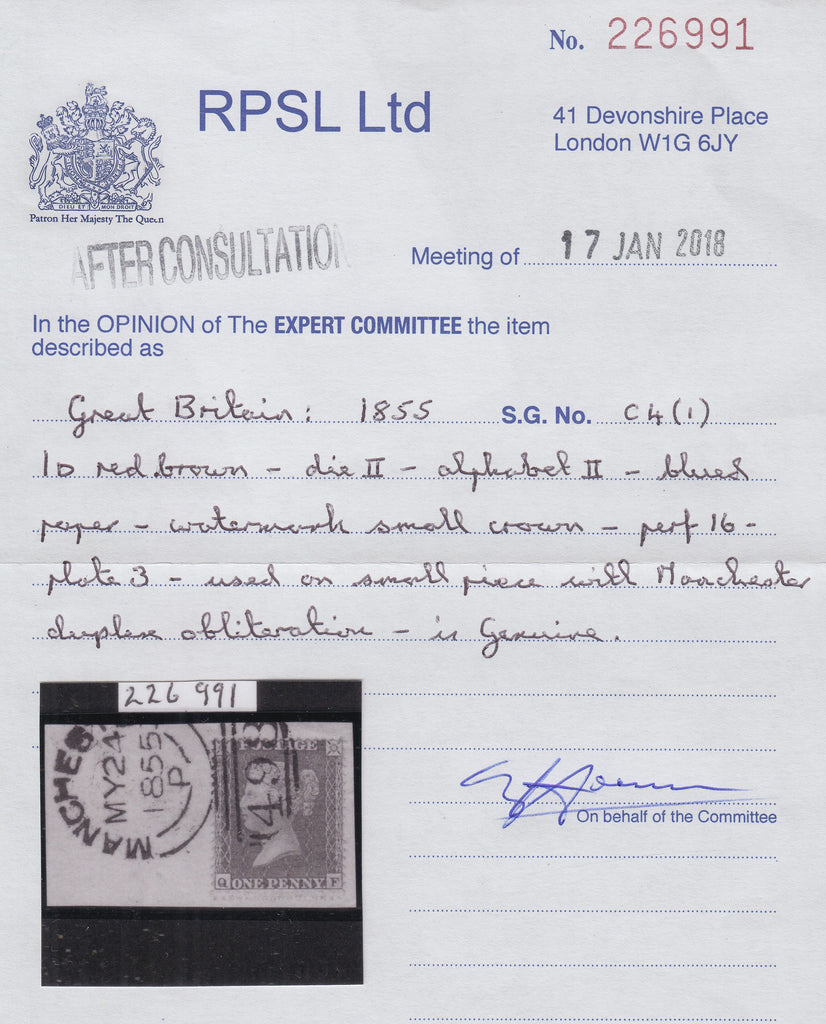 No. 226991
RPSL Ltd
41 Devonshire Place
London W1G 6JY
DIEU ET MON DROIT
Patron Her Majesty The Queen
AFTER CONSULTATION
Meeting of 17 JAN 2018
In the OPINION of The EXPERT COMMITTEE the item
described as
Great Britain: 1855 S.G. No. C4(1)
1D red.brown - die II - alphabet II - blued
paper - watermark small crown - perf 16 -
plate 3 - used on small piece with Manchester
duplex obliteration - is Genuine.
226 991
MANCHES
MY 24
1855
P
498
POSTAGE
Q ONE PENNY F
On behalf of the Committee